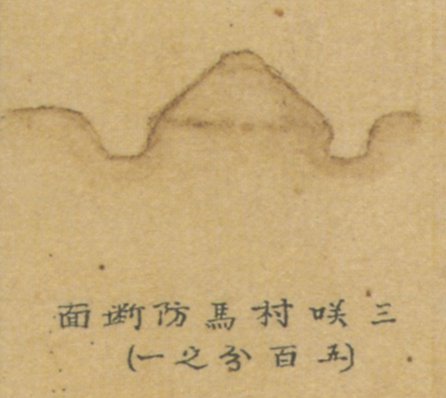 三咲村馬防断面
(五百分之一)